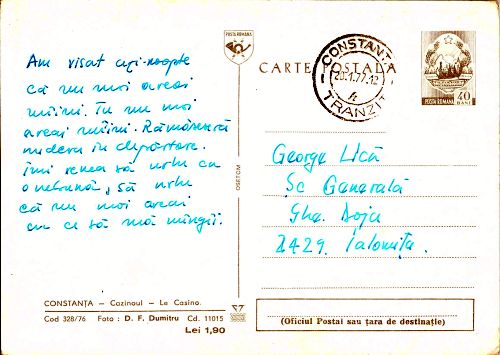 Am visat azi-noapte
că nu mai aveai
mîini. Tu nu mai
aveai mîini. Rămăseseră
undeva în depărtare.
Îmi venea să urlu ca
o nebună, să urlu
că nu mai aveai
cu ce să mă mîngîi.
POSTA ROMANA
CARTE POSTALA
CONSTANTA
20.1.77.12
TRANZIT
POSTA ROMANA
40
BANI
George Lică
Șc Generală
Ghe. Doja
8429 Ialomița.
OSETCM
CONSTANȚA – Cazinoul – Le Casino.
Cod 328/76 Foto: D. F. Dumitru Cd. 11015
Lei 1,90
(Oficiul Postal sau țara de destinație)